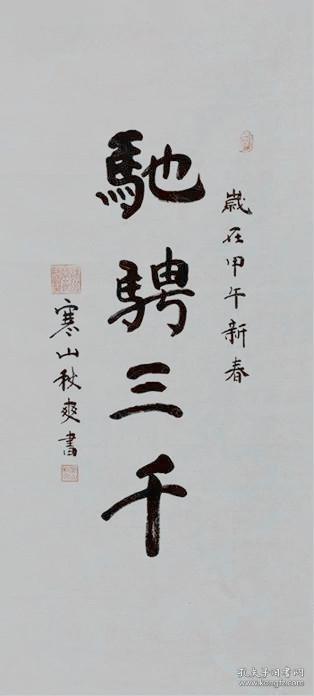 歳在甲午新春
馳騁三千
寒山秋爽書
孔夫子旧书网
www.kongfz.com